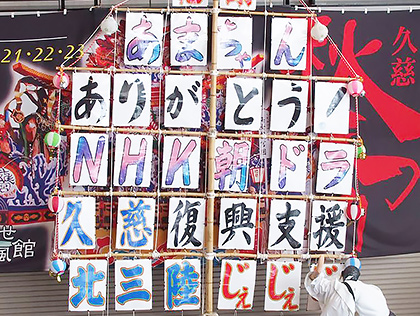 あまちゃん
ありがとう!
NHK朝ドラ
久慈復興支援
北三陸じぇじぇ
久慈
秋つ
21・22・23
風館